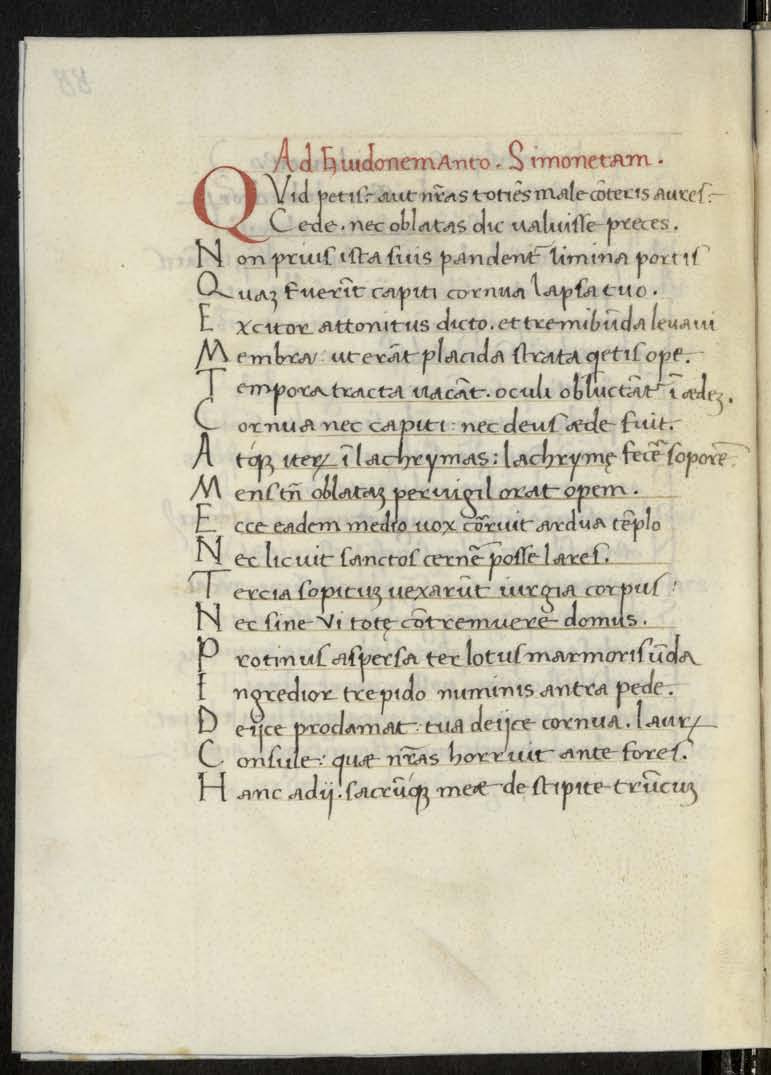 Ad Huidonem Anto. Simonetam.
QVid petis? aut nr̃as totiẽs male cõteris aures?
Cede. nec oblatas dic valuisse preces.
Non prius ista suis pandent̃ limina portis
Quaꝫ fuerĩt capiti cornua lapsa tuo.
Excitor attonitus dicto. et tremibũda levavi
Membra: ut erãt placida strata q̃etis ope.
Tempora tracta vacãt. oculi obluctãt ĩ ædeꝫ.
Cornua nec capiti: nec deus æde fuit.
Atq́ꝫ iteꝝ ĩ lachrymas: lachrymę fecẽ soporẽ.
Mens tñ oblataꝫ pervigil orat opem.
Ecce eadem medio vox cõrruit ardua tẽplo
Nec licuit sanctos cernẽ posse lares.
Tercia sopituꝫ vexarũt iurgia corpus:
Nec sine vi totę cõtremuere domus.
Protinus aspersa ter lotus marmoris ũda
Ingredior trepido numinis antra pede.
Deijce proclamat: tua deijce cornua. lauꝝ
Consule: quæ nr̃as horruit ante fores.
Hanc adij. sacrũq́ꝫ meæ de stipite trũcuꝫ